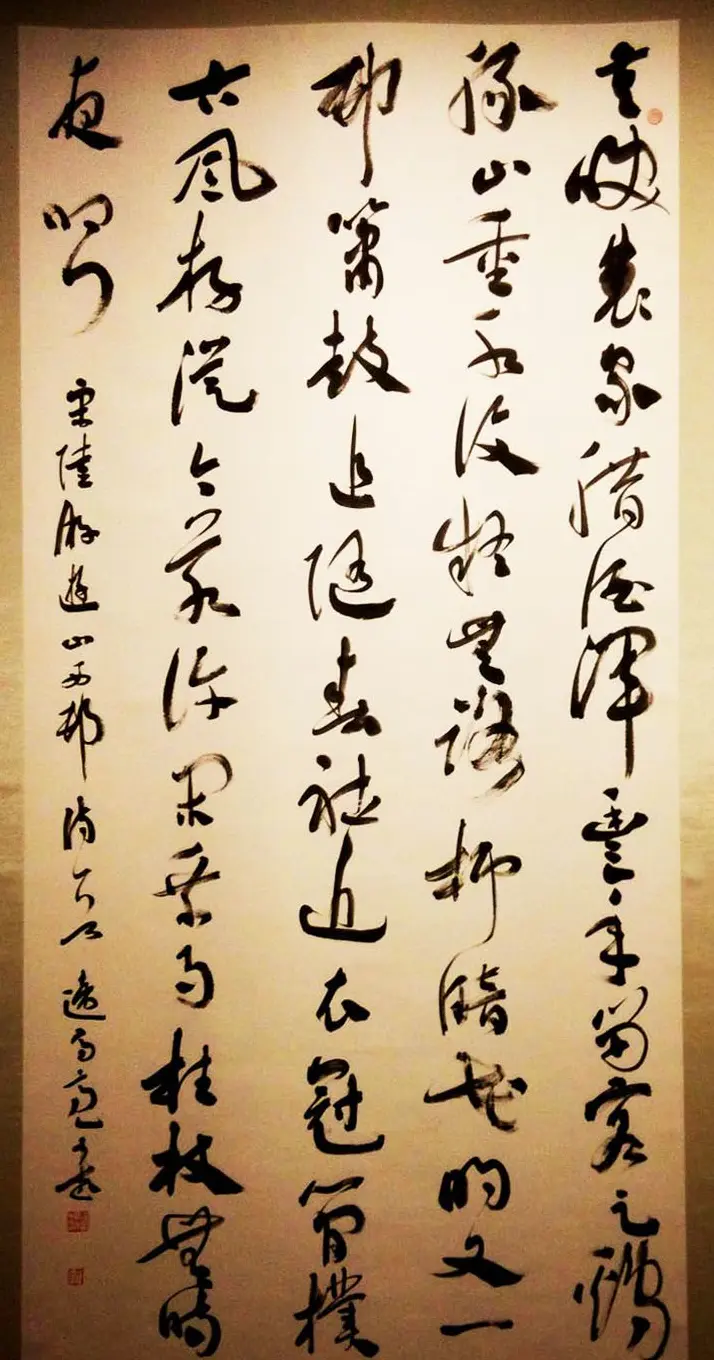 莫笑農家腊酒渾豐年留客足鷄
豚山重水復疑無路柳暗花明又一
邨簫鼓追隨春社近衣冠簡樸
古風存從今若許閑乘月拄杖無時
夜叩門
宋陸游遊山西邨詩